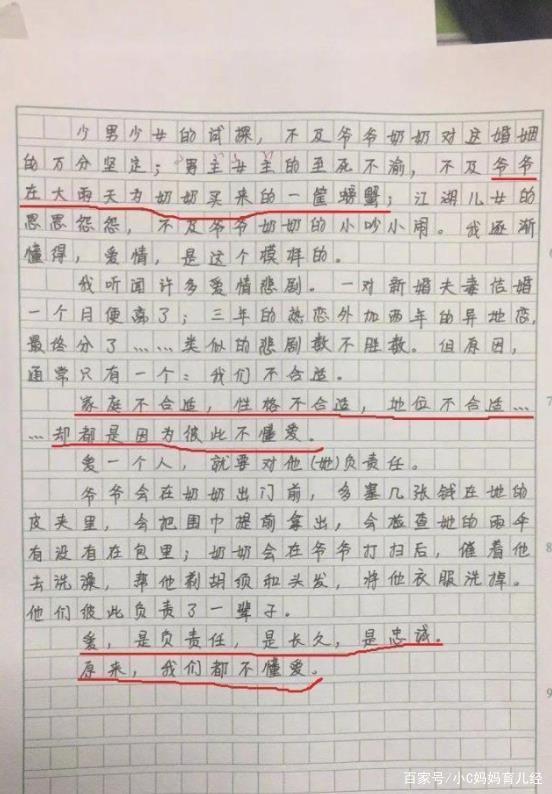 少男少女的试探，不及爷爷奶奶对这婚姻
的万分坚定；男主女主的至死不渝，不及爷爷
在大雨天为奶奶买来的一筐螃蟹；江湖儿女的
恩恩怨怨，不及爷爷奶奶的小吵小闹。我逐渐
懂得，爱情，是这个模样的。
我听闻许多爱情悲剧。一对新婚夫妻结婚
一个月便离了；三年的热恋外加两年的异地恋，
最终分了……类似的悲剧数不胜数。但原因，
通常只有一个：我们不合适。
家庭不合适，性格不合适，地位不合适…
…却都是因为彼此不懂爱。
爱一个人，就要对他(她)负责任。
爷爷会在奶奶出门前，多塞几张钱在她的
皮夹里，会把围巾提前拿出，会检查她的雨伞
有没有在包里；奶奶会在爷爷打扫后，催着他
去洗澡，帮他剃胡须和头发，将他衣服洗掉。
他们彼此负责了一辈子。
爱，是负责任，是长久，是忠诚。
原来，我们都不懂爱。
7
8
9
百家号/小C妈妈育儿经